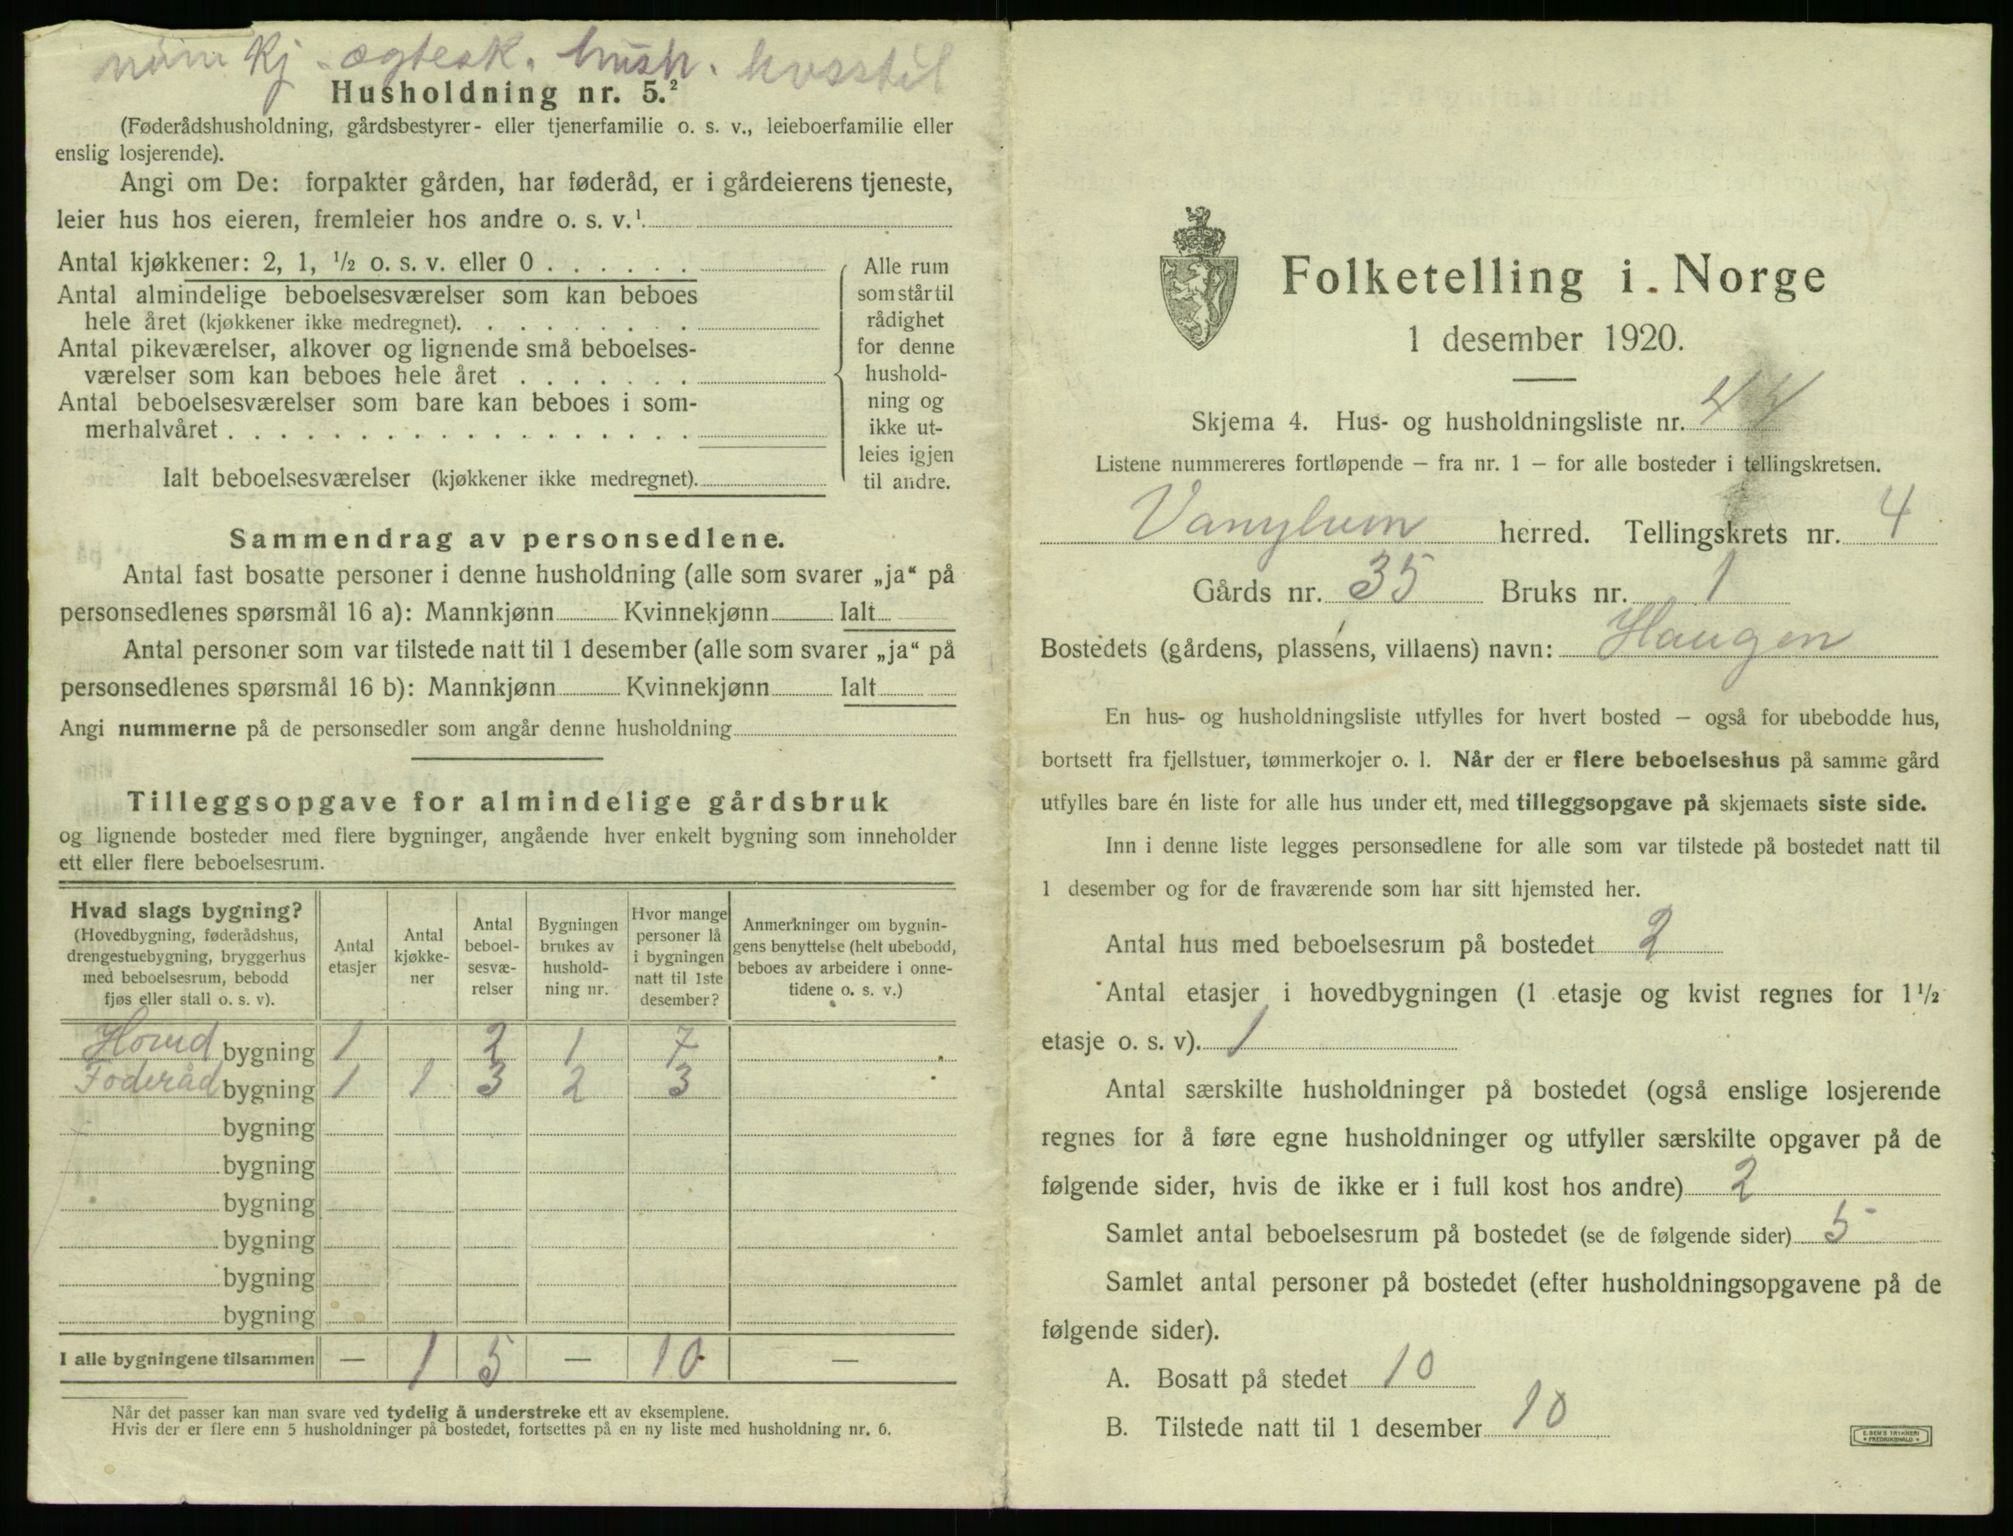 kj. ægtesk. hush. husstil
Husholdning nr. 5.²
(Føderådshusholdning, gårdsbestyrer- eller tjenerfamilie o. s. v., leieboerfamilie eller
enslig losjerende).
Angi om De: forpakter gården, har føderåd, er i gårdeierens tjeneste,
leier hus hos eieren, fremleier hos andre o. s. v.¹
Antal kjøkkener: 2, 1, ½ o. s. v. eller 0 . . . . . .
Antal almindelige beboelsesværelser som kan beboes
hele året (kjøkkener ikke medregnet). . . . . . . . .
Antal pikeværelser, alkover og lignende små beboelses-
værelser som kan beboes hele året . . . . . . .
Antal beboelsesværelser som bare kan beboes i som-
merhalvåret . . . . . . . . . . . . . . . . . .
Ialt beboelsesværelser (kjøkkener ikke medregnet).
Alle rum
som står til
rådighet
for denne
hushold-
ning og
ikke ut-
leies igjen
til andre.
Sammendrag av personsedlene.
Antal fast bosatte personer i denne husholdning (alle som svarer „ja“ på
personsedlenes spørsmål 16 a): Mannkjønn Kvinnekjønn Ialt
Antal personer som var tilstede natt til 1 desember (alle som svarer „ja“ på
personsedlenes spørsmål 16 b): Mannkjønn Kvinnekjønn Ialt
Angi nummerne på de personsedler som angår denne husholdning
Tilleggsopgave for almindelige gårdsbruk
og lignende bosteder med flere bygninger, angående hver enkelt bygning som inneholder
ett eller flere beboelsesrum.
Hvad slags bygning?
(Hovedbygning, føderådshus,
drengestuebygning, bryggerhus
med beboelsesrum, bebodd
fjøs eller stall o. s. v).
Antal
etasjer
Antal
kjøkke-
ner
Antal
beboel-
sesvæ-
relser
Bygningen
brukes av
hushold-
ning nr.
Hvor mange
personer lå
i bygningen
natt til 1ste
desember?
Anmerkninger om bygnin-
gens benyttelse (helt ubebodd,
beboes av arbeidere i onne-
tidene o. s. v.)
Hoved bygning 1 2 1 7
Foderåd bygning 1 1 3 2 3
bygning
bygning
bygning
bygning
bygning
bygning
I alle bygningene tilsammen — 1 5 — 10 —
Når det passer kan man svare ved tydelig å understreke ett av eksemplene.
Hvis der er flere enn 5 husholdninger på bostedet, fortsettes på en ny liste med husholdning nr. 6.
Folketelling i Norge
1 desember 1920.
Skjema 4. Hus- og husholdningsliste nr. 44
Listene nummereres fortløpende – fra nr. 1 – for alle bosteder i tellingskretsen.
Vanylven herred. Tellingskrets nr. 4
Gårds nr. 35 Bruks nr. 1
Bostedets (gårdens, plassens, villaens) navn: Haugen
En hus- og husholdningsliste utfylles for hvert bosted – også for ubebodde hus,
bortsett fra fjellstuer, tømmerkojer o. l. Når der er flere beboelseshus på samme gård
utfylles bare én liste for alle hus under ett, med tilleggsopgave på skjemaets siste side.
Inn i denne liste legges personsedlene for alle som var tilstede på bostedet natt til
1 desember og for de fraværende som har sitt hjemsted her.
Antal hus med beboelsesrum på bostedet 2
Antal etasjer i hovedbygningen (1 etasje og kvist regnes for 1½
etasje o. s. v). 1
Antal særskilte husholdninger på bostedet (også enslige losjerende
regnes for å føre egne husholdninger og utfyller særskilte opgaver på de
følgende sider, hvis de ikke er i full kost hos andre) 2
Samlet antal beboelsesrum på bostedet (se de følgende sider) 5
Samlet antal personer på bostedet (efter husholdningsopgavene på de
følgende sider).
A. Bosatt på stedet 10
B. Tilstede natt til 1 desember 10